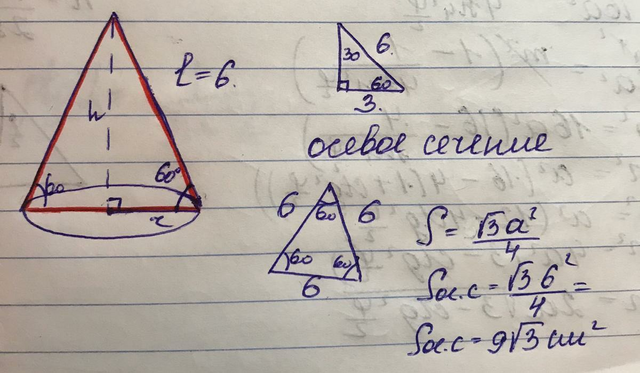 h
l = 6.
60
60°
r
30
6.
60
3.
осевое сечение
6
60
6
60
60
6
S = √3a²/4
Sо.с = √3 6²/4 =
Sо.с = 9√3 см²